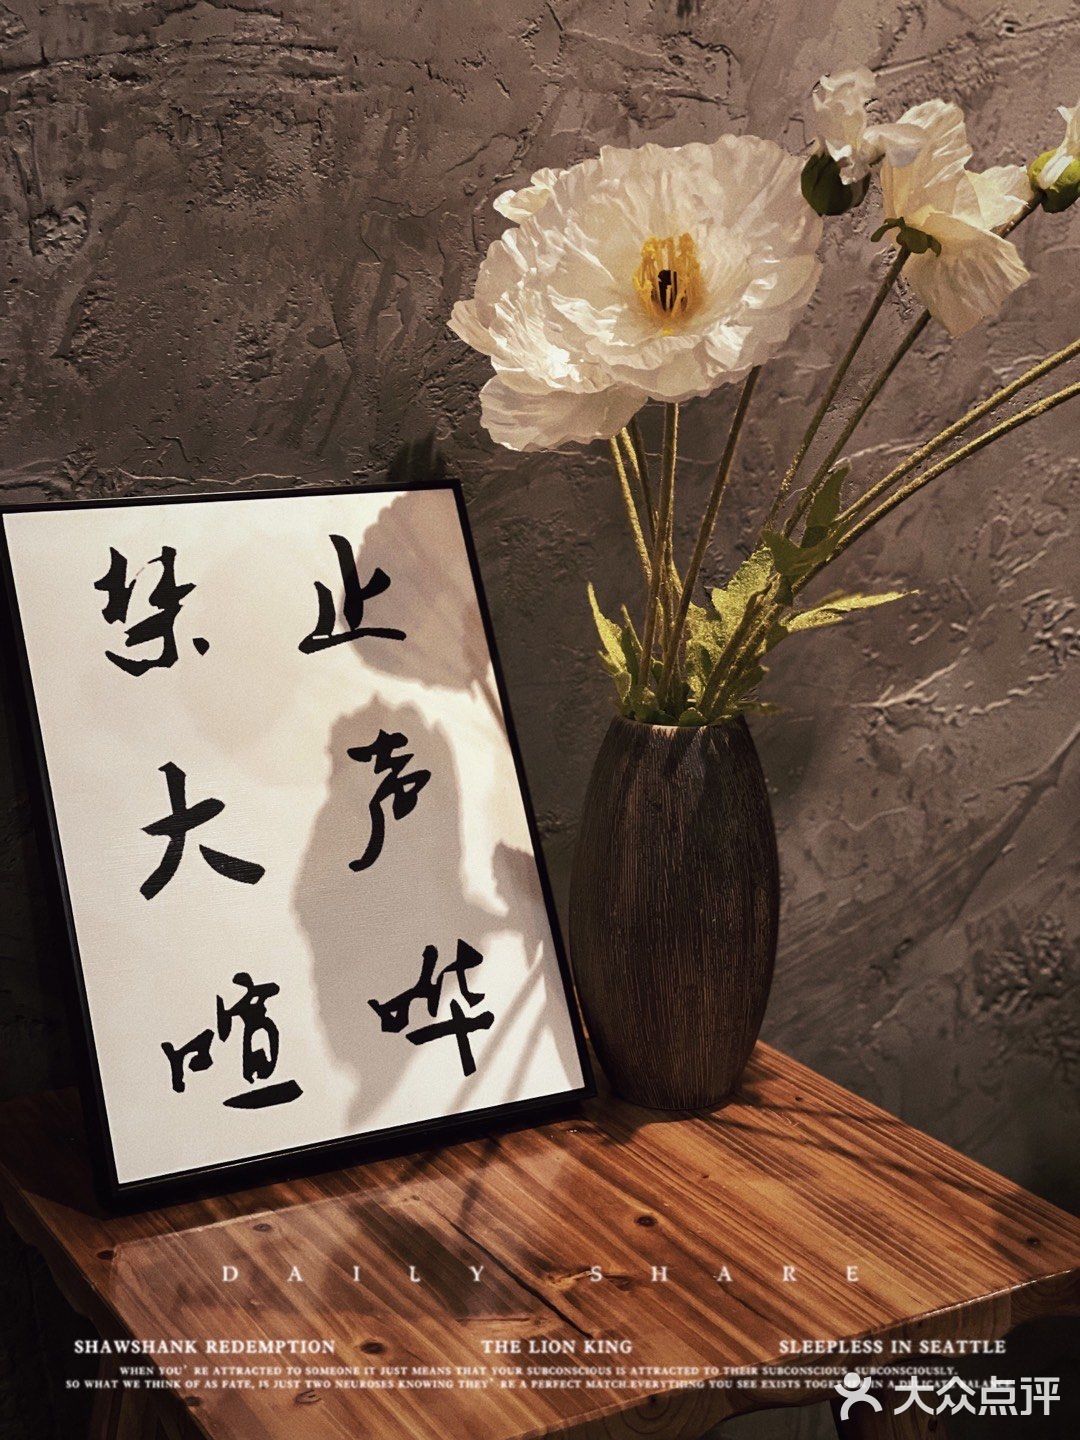 禁止
大声
喧哗
DAILY SHARE
SHAWSHANK REDEMPTION THE LION KING SLEEPLESS IN SEATTLE
WHEN YOU'RE ATTRACTED TO SOMEONE IT JUST MEANS THAT YOUR SUBCONSCIOUS IS ATTRACTED TO THEIR SUBCONSCIOUS, SUBCONSCIOUSLY.
SO WHAT WE THINK OF AS FATE, IS JUST TWO NEUROSES KNOWING THEY'RE A PERFECT MATCH.EVERYTHING YOU SEE EXISTS TOGETHER IN A DELICATE
大众点评